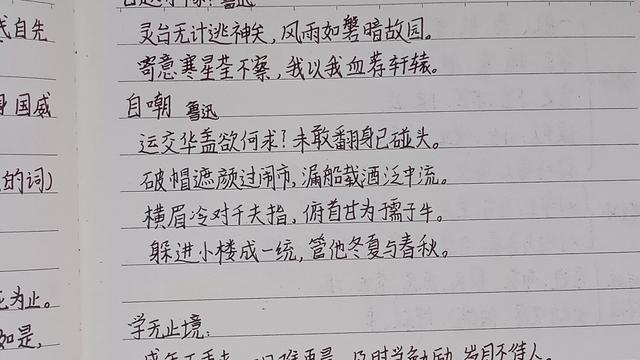 自先
国威
的词)
为止。
如是,
鲁迅
灵台无计逃神矢,风雨如磐暗故园。
寄意寒星荃不察,我以我血荐轩辕。
自嘲 鲁迅
运交华盖欲何求?未敢翻身已碰头。
破帽遮颜过闹市,漏船载酒泛中流。
横眉冷对千夫指,俯首甘为孺子牛。
躲进小楼成一统,管他冬夏与春秋。
学无止境:
及时当勉励,岁月不待人。